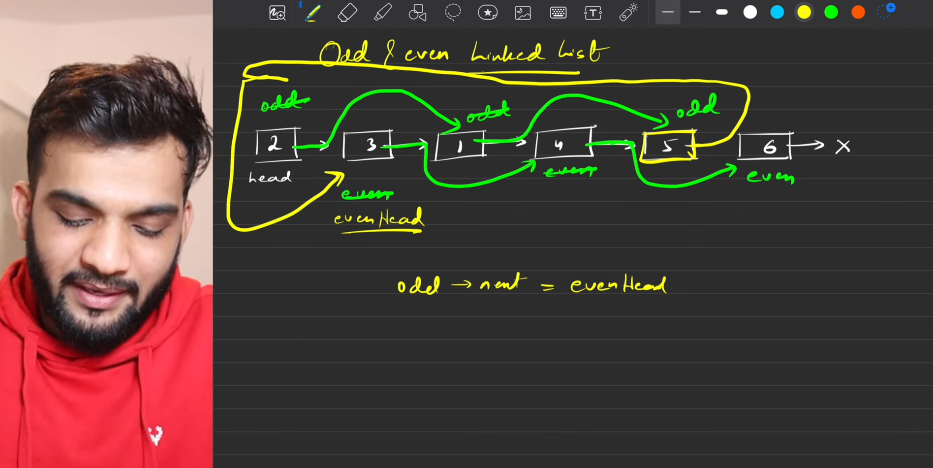 Odd & even Linked List
odd odd odd
2 3 1 4 5 6 X
head even even
even
evenHead
odd → next = evenHead